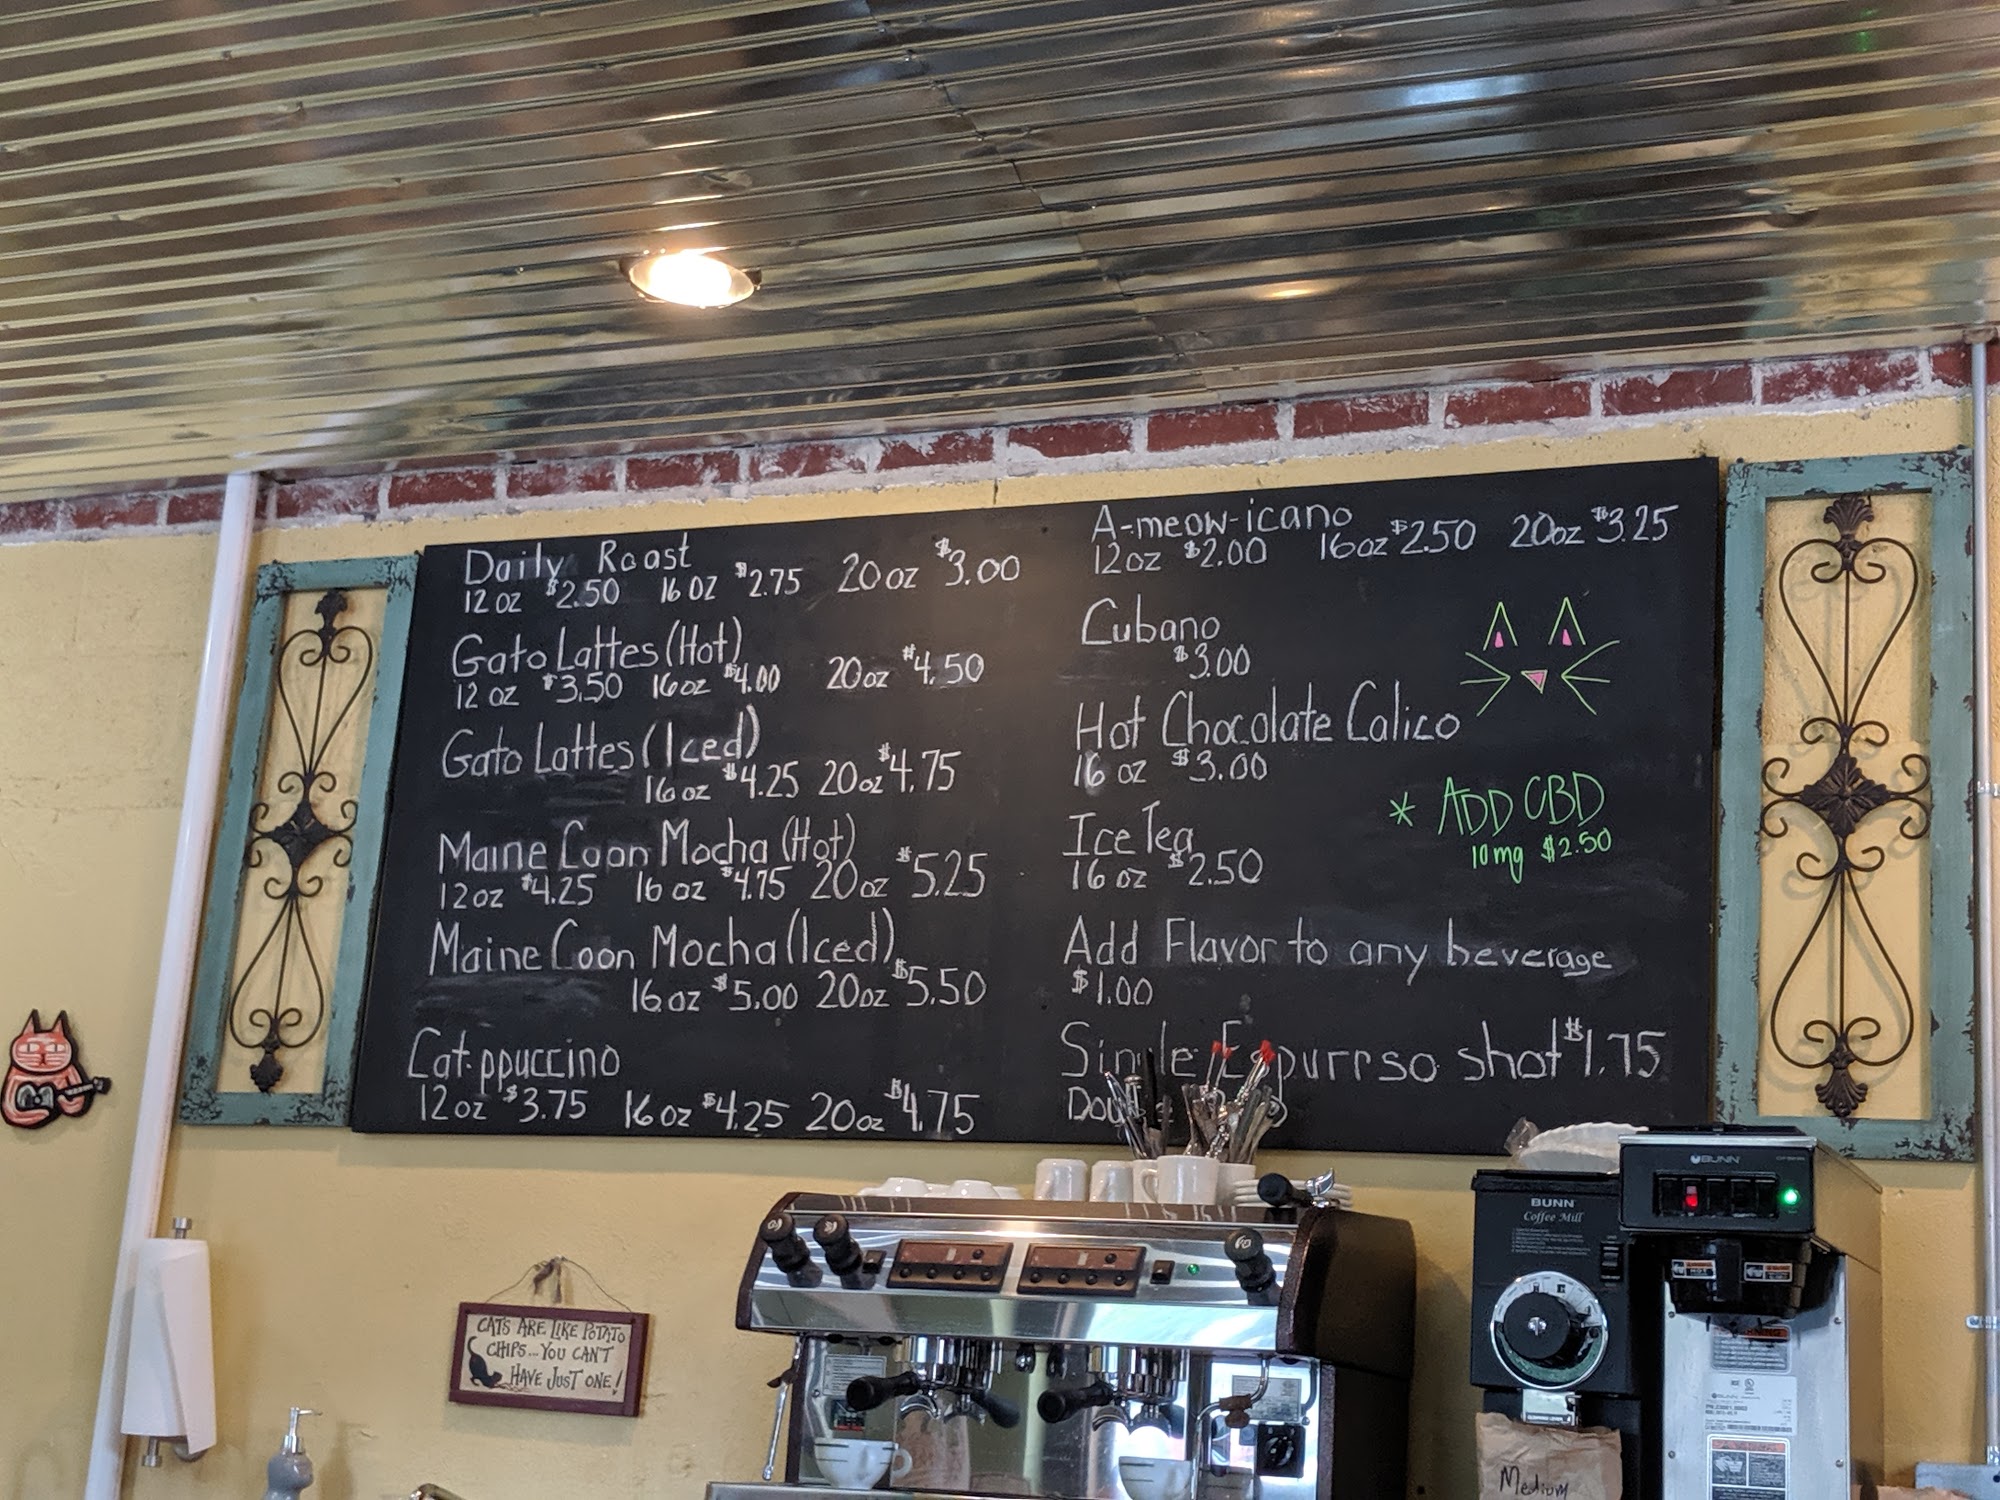 Daily Roast
12 oz $2.50 16 oz $2.75 20 oz $3.00
Gato Lattes (Hot)
12 oz $3.50 16 oz $4.00 20 oz $4.50
Gato Lattes (Iced)
16 oz $4.25 20 oz $4.75
Maine Coon Mocha (Hot)
12 oz $4.25 16 oz $4.75 20 oz $5.25
Maine Coon Mocha (Iced)
16 oz $5.00 20 oz $5.50
Cat-ppuccino
12 oz $3.75 16 oz $4.25 20 oz $4.75
A-meow-icano
12 oz $2.00 16 oz $2.50 20 oz $3.25
Cubano
$3.00
Hot Chocolate Calico
16 oz $3.00
Ice Tea
16 oz $2.50
* ADD CBD
10mg $2.50
Add Flavor to any beverage
$1.00
Single Espurrso shot $1.75
CATS ARE LIKE POTATO
CHIPS... YOU CAN'T
HAVE JUST ONE!
BUNN
Coffee Mill
BUNN
Medium